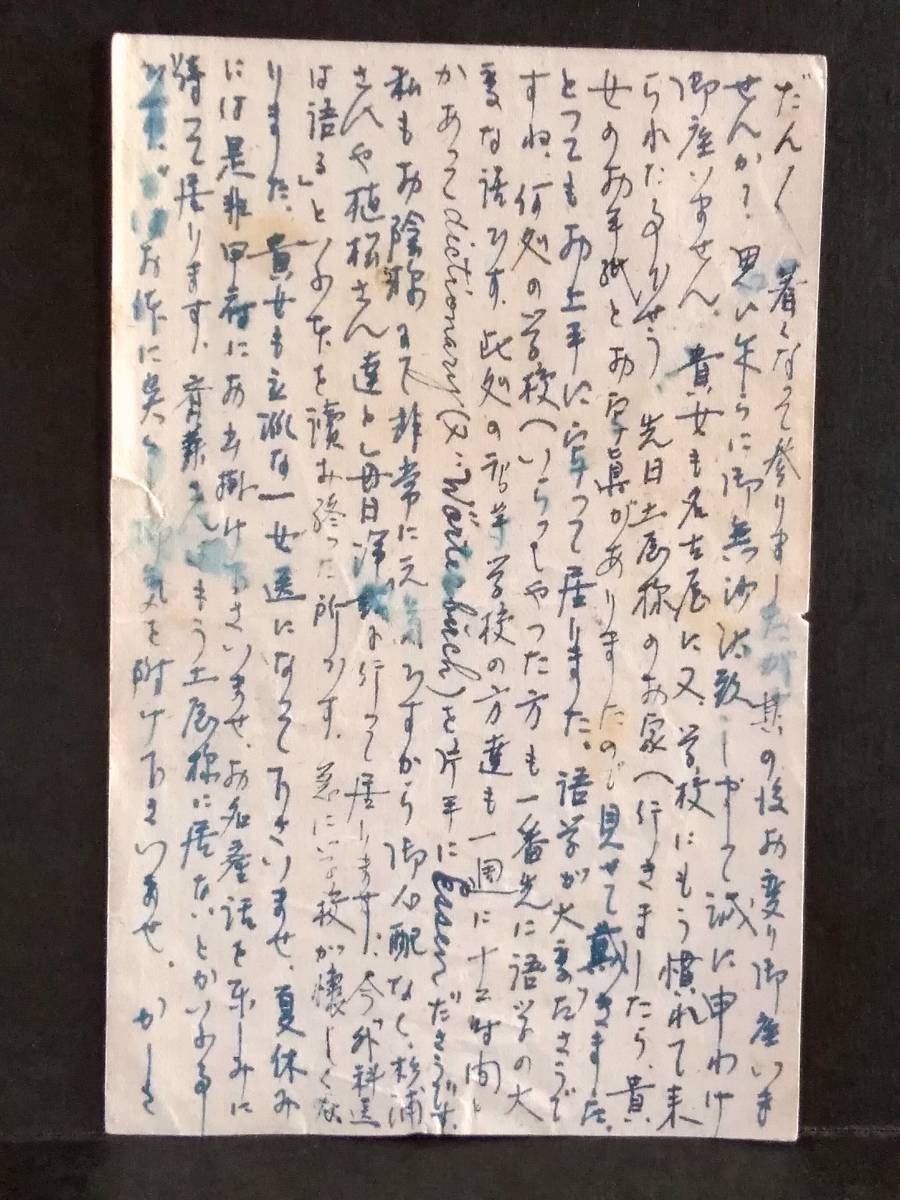 だん〳〵暑くなって参りましたが其の後お変り御座いま
せんか？思い乍らに御無沙汰致しまして誠に申わけ
御座いません、貴女も名古屋に又、学校にもう慣れて来
られた事でせう　先日土屋様のお家へ行きましたら、貴
女のお手紙とお写真がありましたので見せて戴きました、
とってもお上手に写って居りました。語学が大変ださうで
すね、何処の学校へいらっしやった方も一番先に語学の大
変な話です、此処の 学校の方達も一週に十二時間と
かあって dictionary (又ハ Wörterbuch) を片手に Essen ださうです。
私もお陰様にて非常に元気ですから御心配なく、杉浦
さんや植松さん達と毎日 行って居ります、今「外科医
は語る」といふ本を讀み終った所です。急に学校が懐しくな
りました、貴女も立派な一女医になって下さいませ、夏休み
には是非甲府にお出掛け下さいませ、お名産話を楽しみに
待って居ります、 もう土屋様に居ないとかいふ事
お体に呉々も御気を附け下さいませ。かしこ